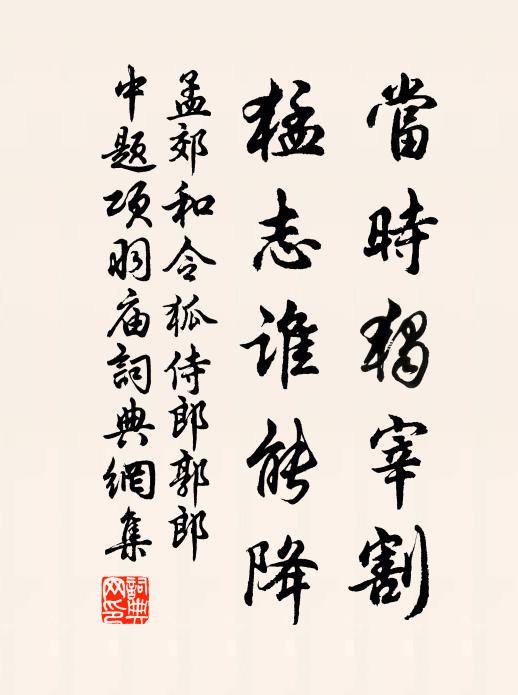 當時獨宰割
猛志誰能降
孟郊和令狐侍郎郭郎
中題項羽庙詞典網集
詞典網印